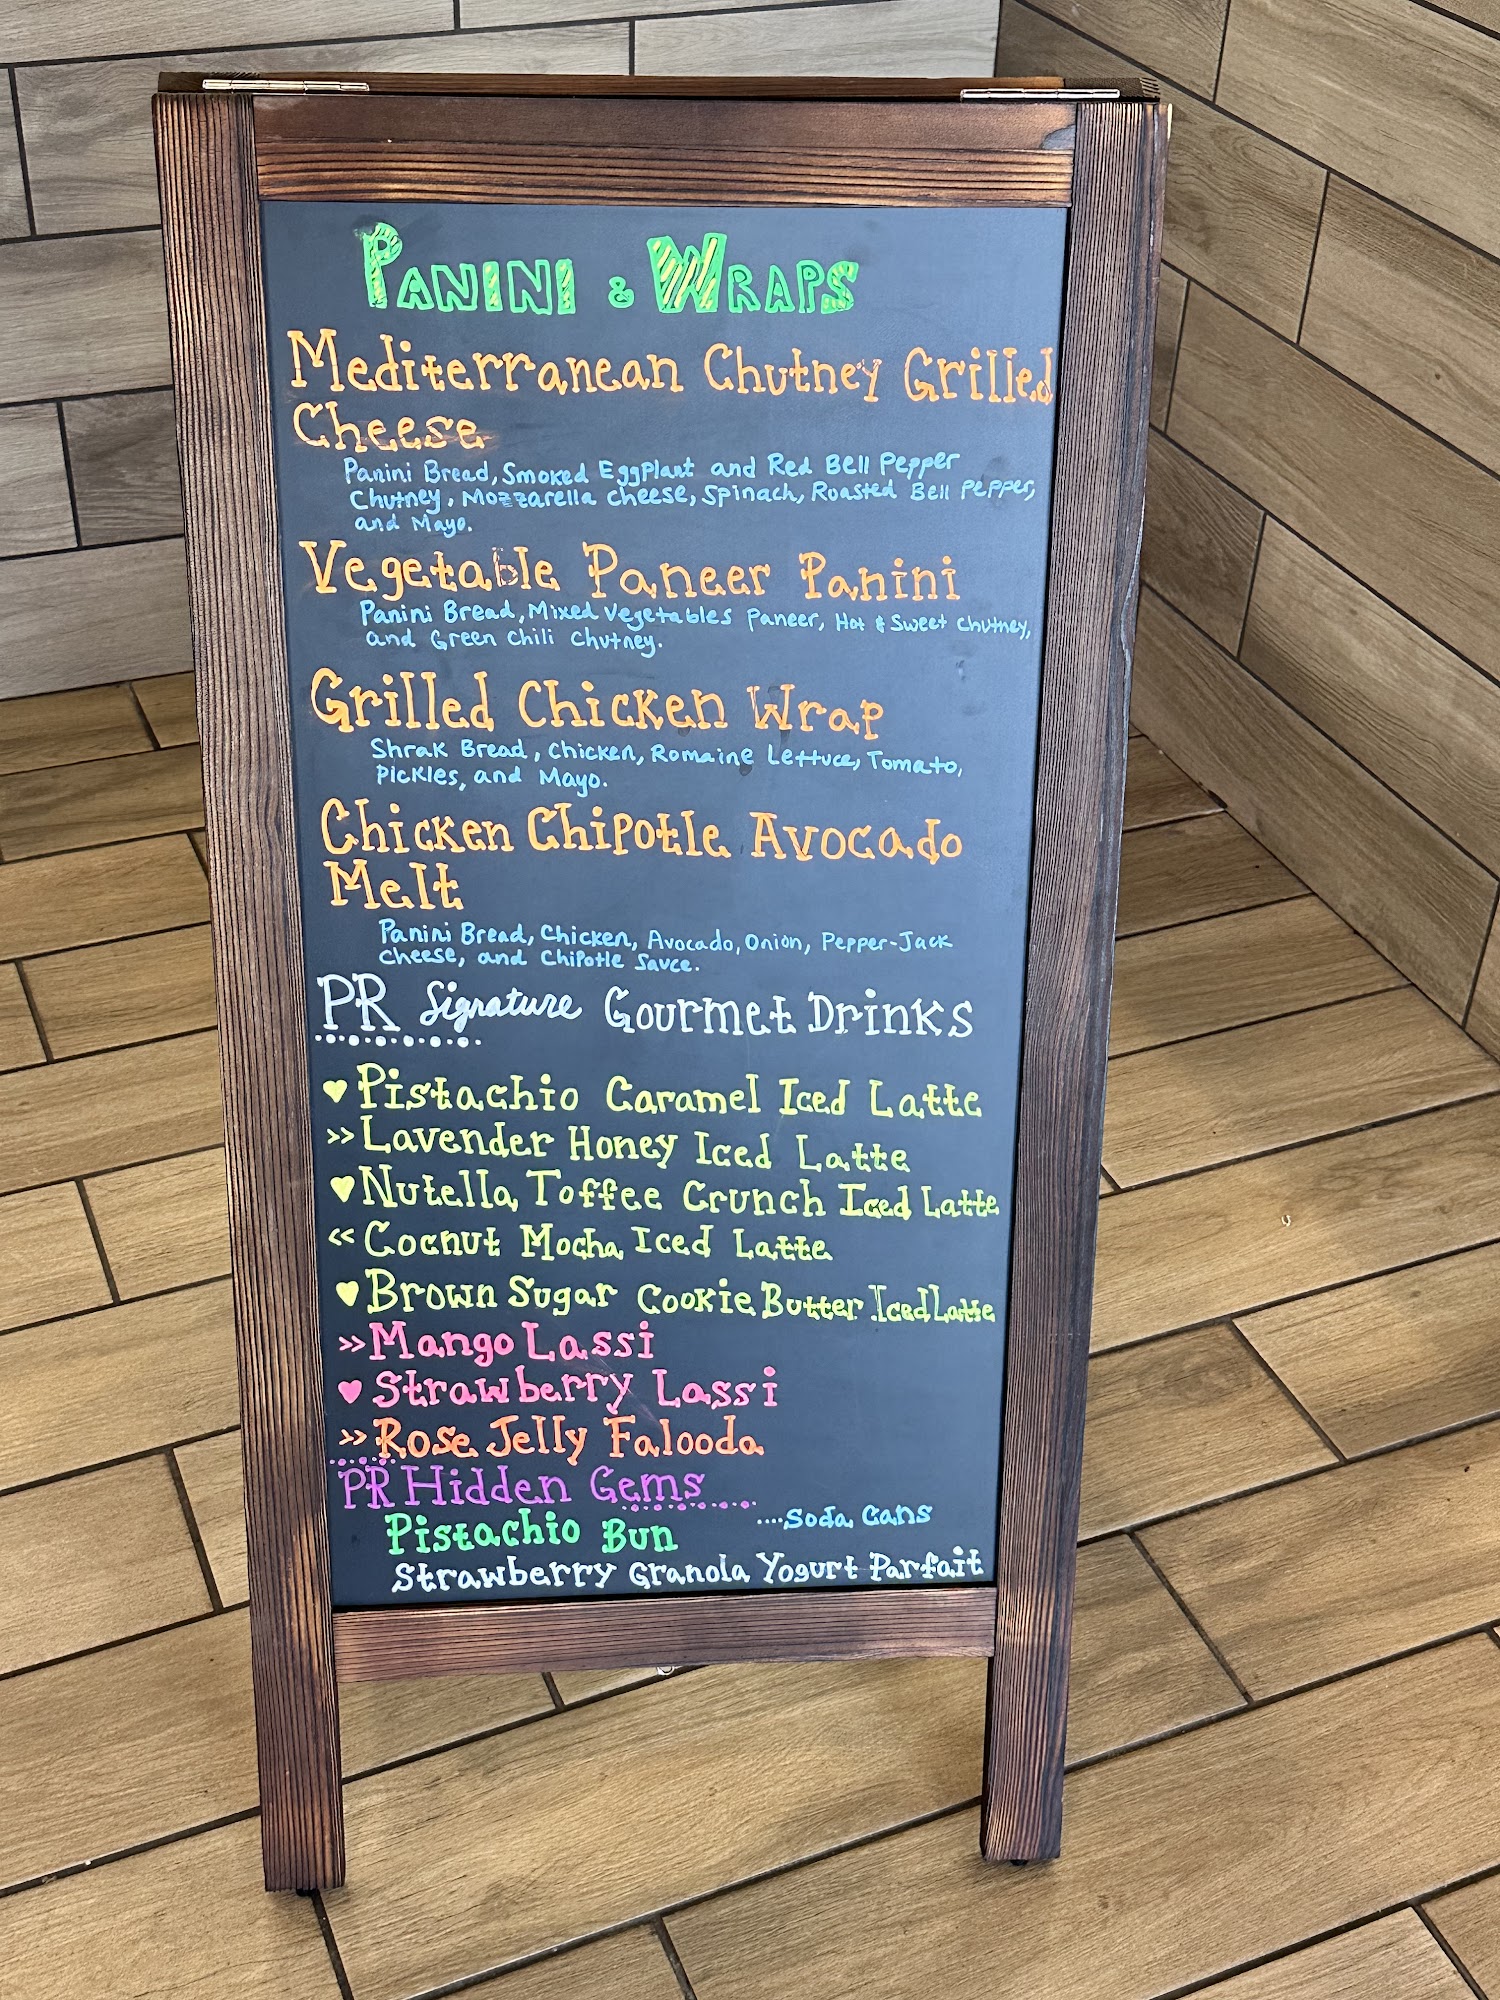 Panini & Wraps
Mediterranean Chutney Grilled
Cheese
Panini Bread, Smoked Eggplant and Red Bell Pepper
Chutney, Mozzarella Cheese, Spinach, Roasted Bell Pepper,
and Mayo.
Vegetable Paneer Panini
Panini Bread, Mixed Vegetables Paneer, Hot & Sweet Chutney,
and Green Chili Chutney.
Grilled Chicken Wrap
Shrak Bread, Chicken, Romaine Lettuce, Tomato,
Pickles, and Mayo.
Chicken Chipotle Avocado
Melt
Panini Bread, Chicken, Avocado, Onion, Pepper-Jack
Cheese, and Chipotle Sauce.
PR Signature Gourmet Drinks
♥ Pistachio Caramel Iced Latte
>> Lavender Honey Iced Latte
♥ Nutella Toffee Crunch Iced Latte
<< Cocnut Mocha Iced Latte
♥ Brown Sugar Cookie Butter Iced Latte
>> Mango Lassi
♥ Strawberry Lassi
>> Rose Jelly Falooda
PR Hidden Gems
....Soda Cans
Pistachio Bun
Strawberry Granola Yogurt Parfait